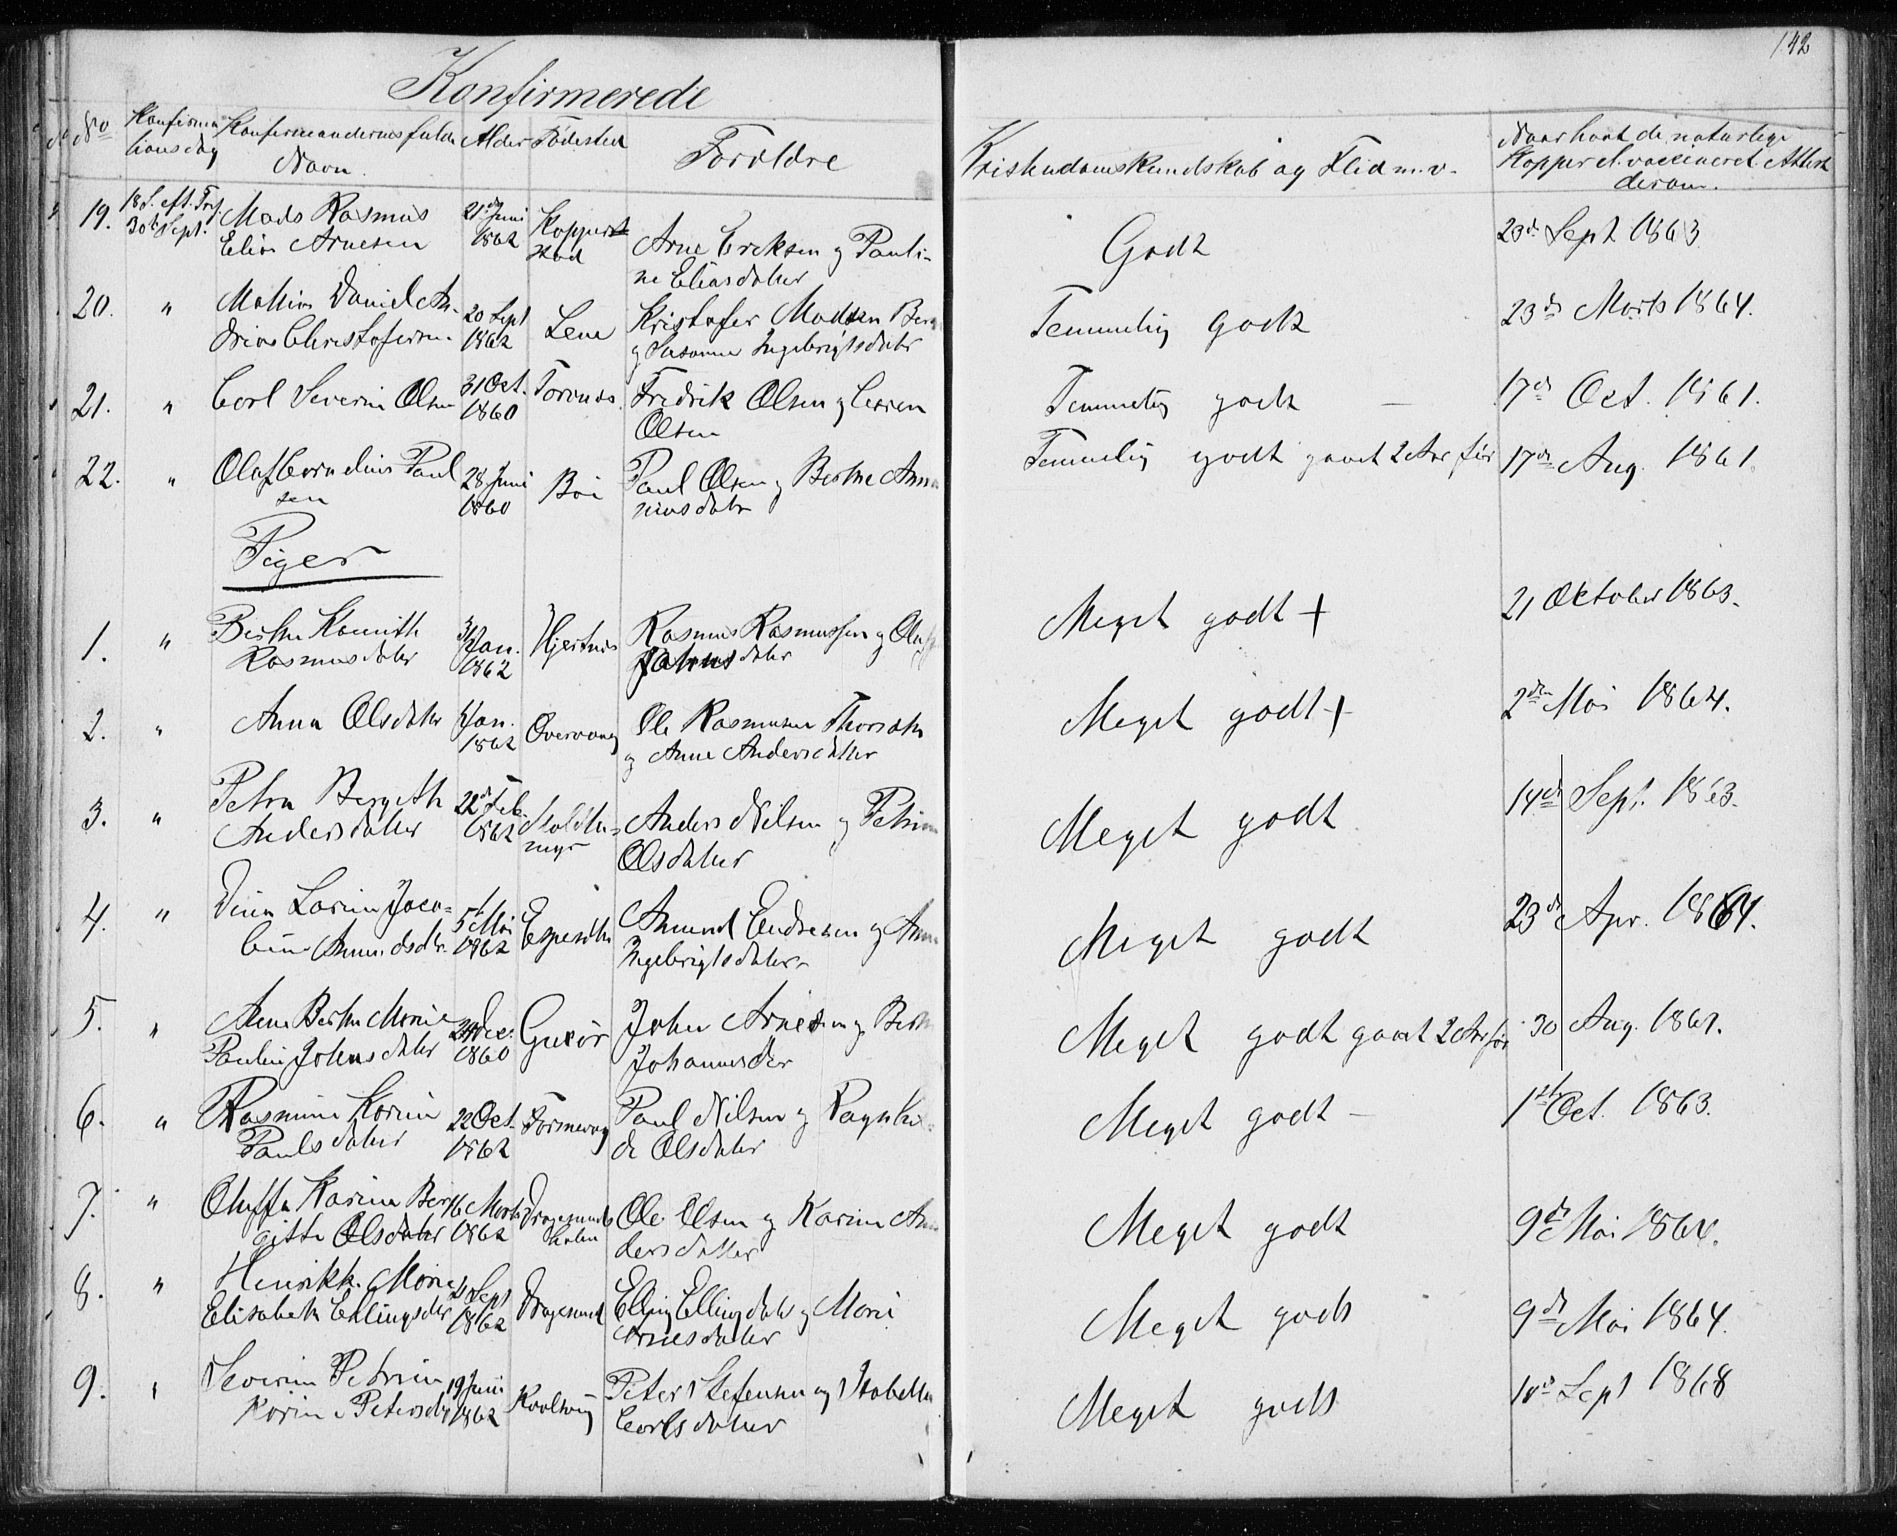 142
Konfirmerede
No Konfirma Konfirmandernes fulde Alder Fødested Forældre Kristendomskundskab og Flid m. v. Naar havt de naturlige
tionsdag Navn. Kopper el. vaccineret Attest
derom.
19. 18 S. eft. Tref. Mads Rasmus 21de Juni Kopper
30te Sept. Elias Arnesen 1862 stad Arne Eriksen og Pauli- Godt 23de Sept 1863
ne Eliasdatter
20. " Mathias Daniel An- 20 Sept Lene Kristofer Madsen Berg Temmelig Godt 23de Marts 1864.
drias Christofersen. 1862 og Susanne Ingebrigtsdatr
21. " Carl Severin Olsen 31 Oct. Torvnes Fredrik Olsen og Temmelig godt — 17de Oct. 1861.
1860 Olsen
22. " Olaf Cornelius Paul 28 Juni Bøe Paul Olsen og Berthe Temmelig godt gaaet 2 Aar før 17de Aug. 1861.
sen 1860 datr
Piger
1. " Berthe Rasmus Rasmussen og Meget godt + 21 Oktober 1863.
Rasmusdatter Jan. 1862 Hjertnes datter
2. " Anna Olsdatter Jan. Overvaag Ole Rasmusen Meget godt + 2den Mai 1864.
1862 og Anne Andersdatter
3. " Petra Bergeth 22de Feb. Anders Nilsen og Petrine Meget godt 14de Sept. 1863.
Andersdatter 1862 myr Olsdatter
4. " Dina Larine Jaco- 5te Mai Amund Endresen og Anne Meget godt 23de Apr. 1864.
bine Amundsdtr. 1862 Ingebrigtsdatter
5. " Anne Berthe Marie 24 Dec. Guxør John Arnesen og Berthe Meget godt gaaet 2 Aar før 30 Aug. 1861.
Pauline Johnsdatter 1860 Johannesdtr
6. " Rasmine Karine 22 Oct. Paul Nilsen og Ragnhil- Meget godt — 1ste Oct. 1863.
Paulsdatter 1862 de Olsdatter
7. " Oluffa Karine Ber 16 Marts Dragesunds Ole Olsen og Karine An Meget godt 9de Mai 1864.
gitte Olsdatter 1862 holm dersdatter
8. " Henrikke Marie Sept Dragesund Elling Ellingdatr og Marie Meget godt 9de Mai 1864.
Elisabeth Ellingsdtr 1862 Arnesdatter
9. " Severine Petrine 19 Juni Peter Stefensen og Isabella Meget godt Sept 1868
Karine Petersdtr 1862 Carlsdatter